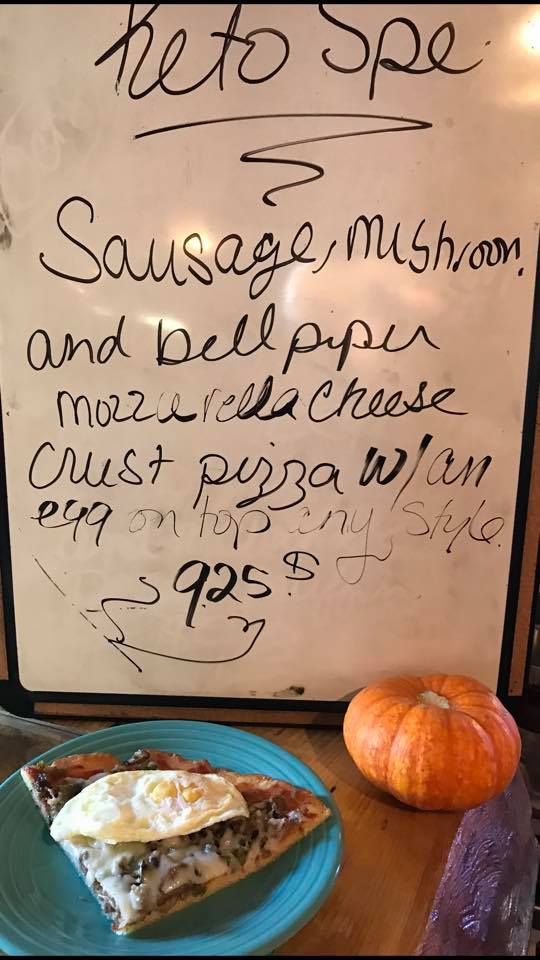 Keto Spe
Sausage, Mushroom
and bell peper
Mozzarella Cheese
Crust pizza w/an
egg on top any style
9.25 $